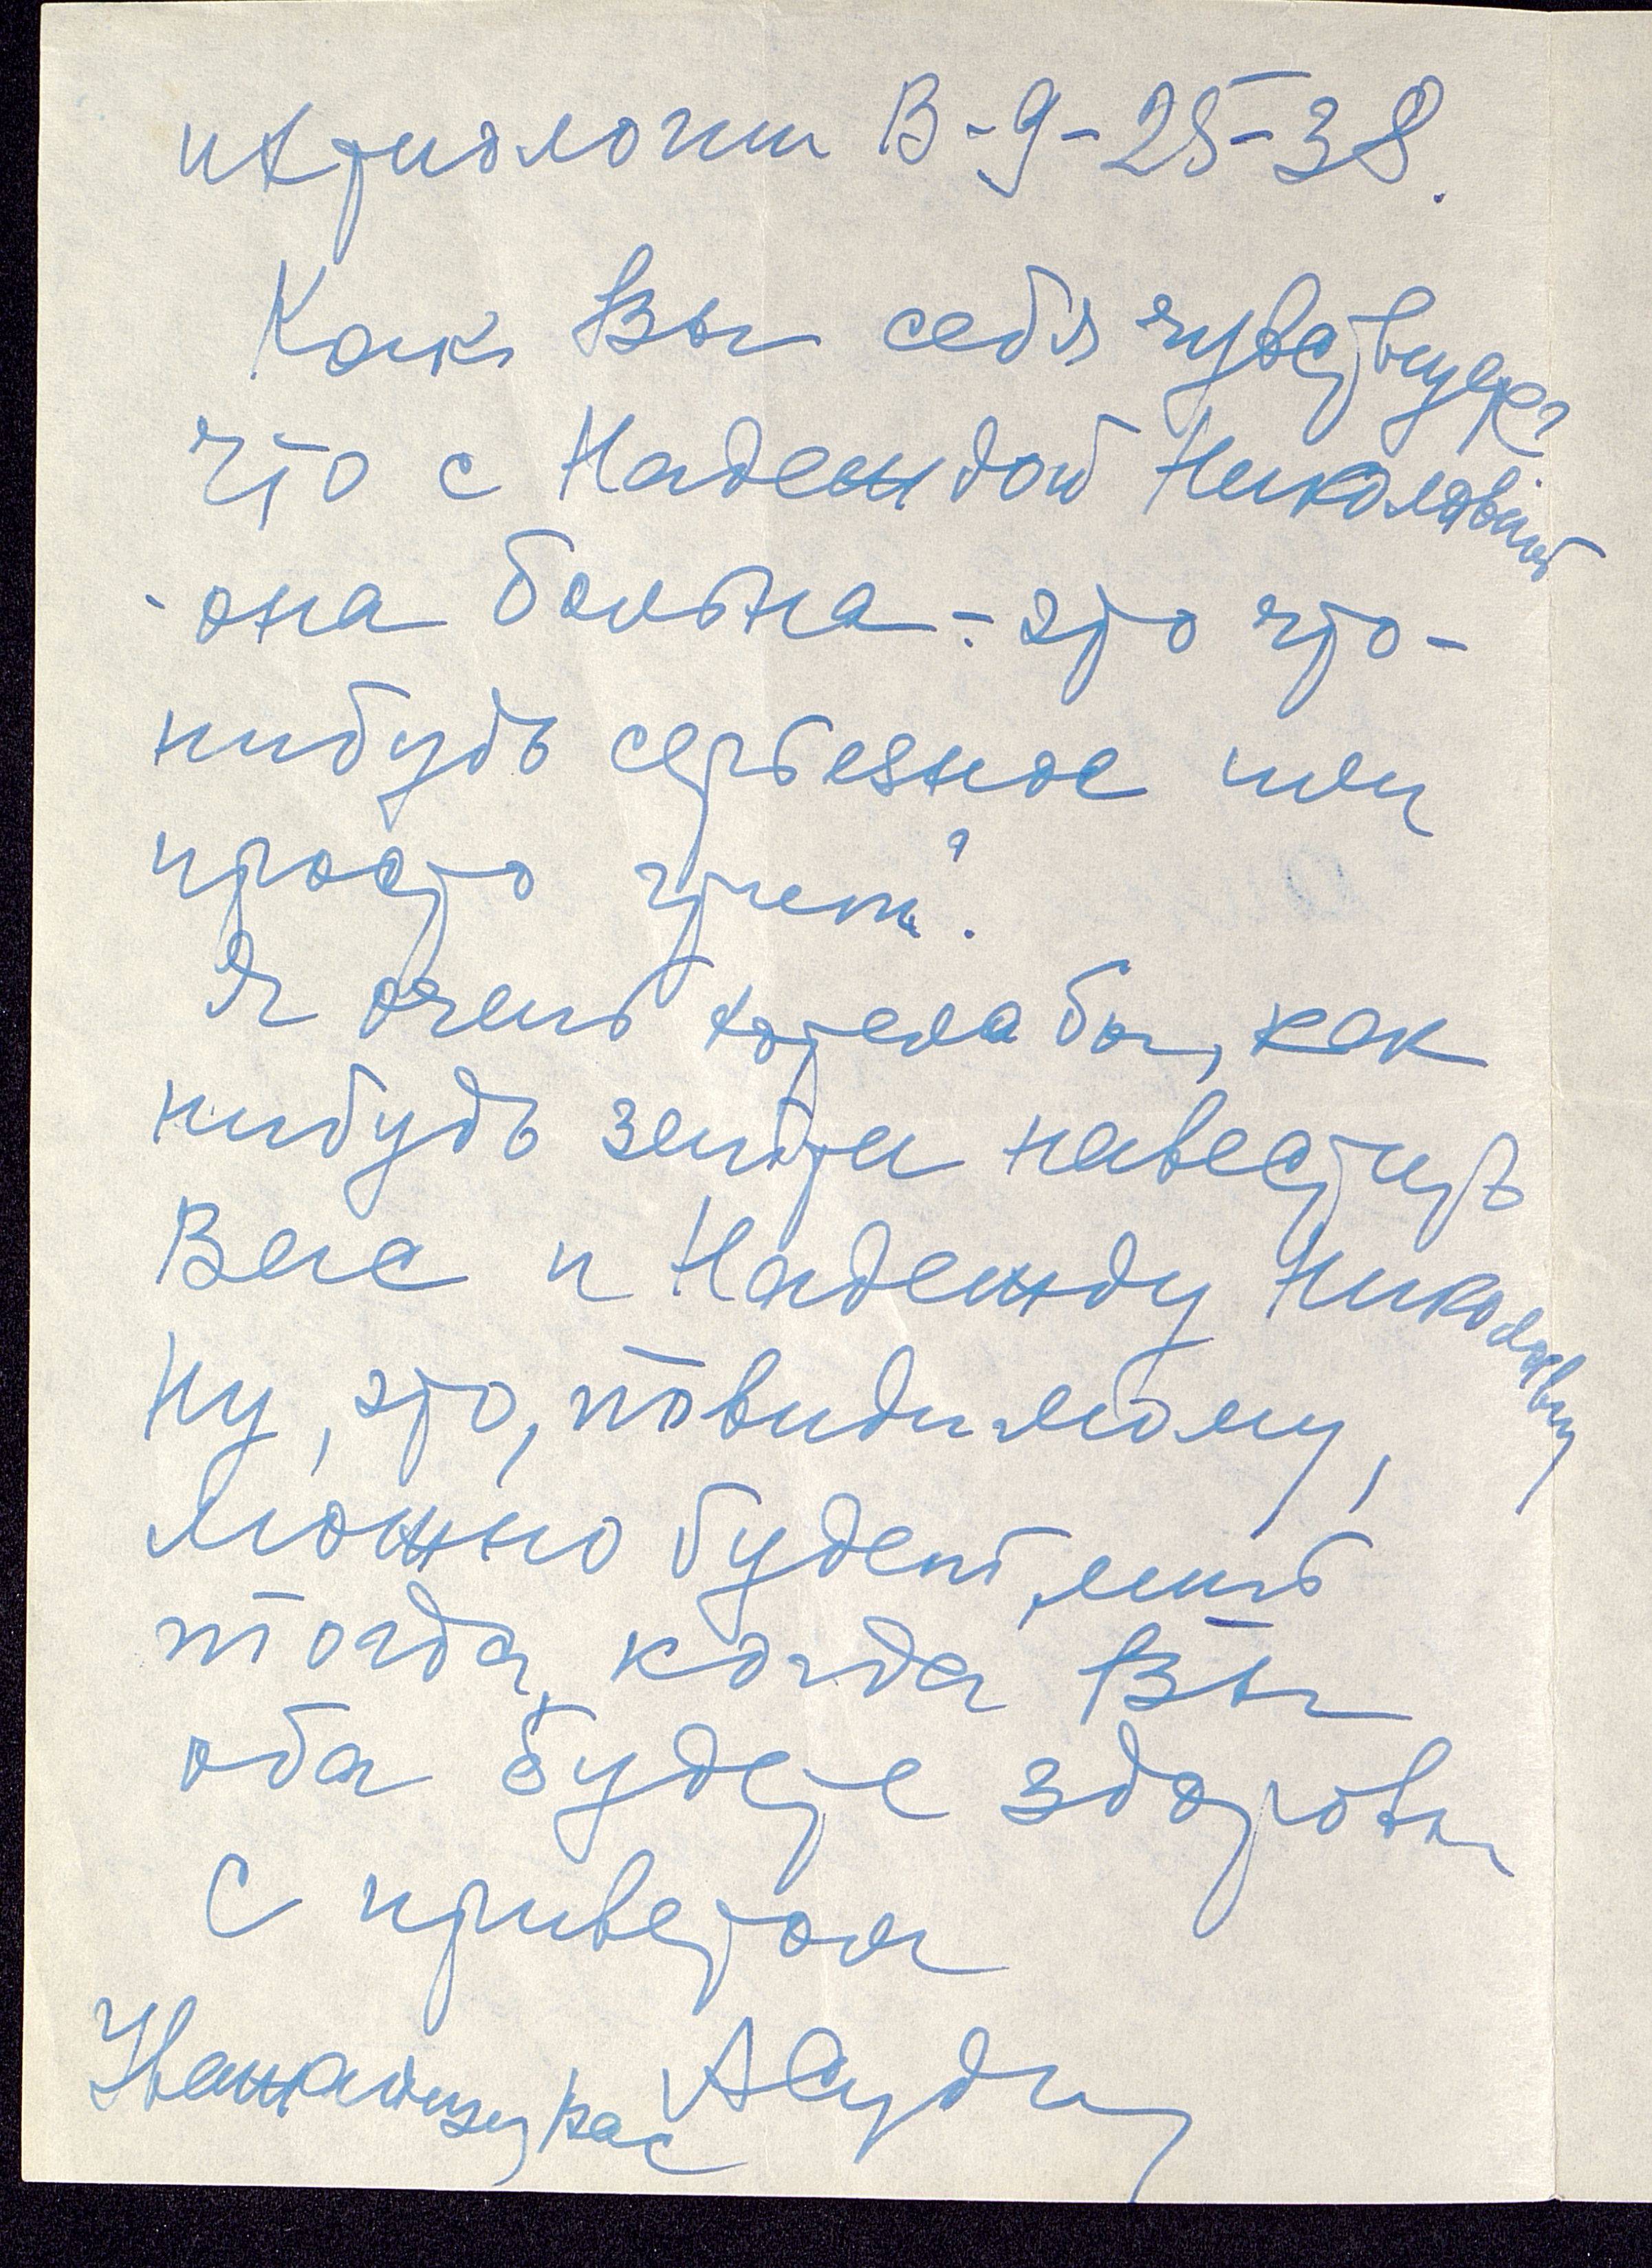 ихтиологии В-9-25-38.
Как Вы себя чувствуете?
Что с Надеждой Николаевной
- она больна - это что-
нибудь серьезное или
просто грипп?
Я очень хотела бы, как
нибудь зайти навестить
Вас и Надежду Николаевну
Ну, это, повидимому,
можно будет, лишь
тогда, когда Вы
оба будете здоровы
С приветом
Уважающая Вас